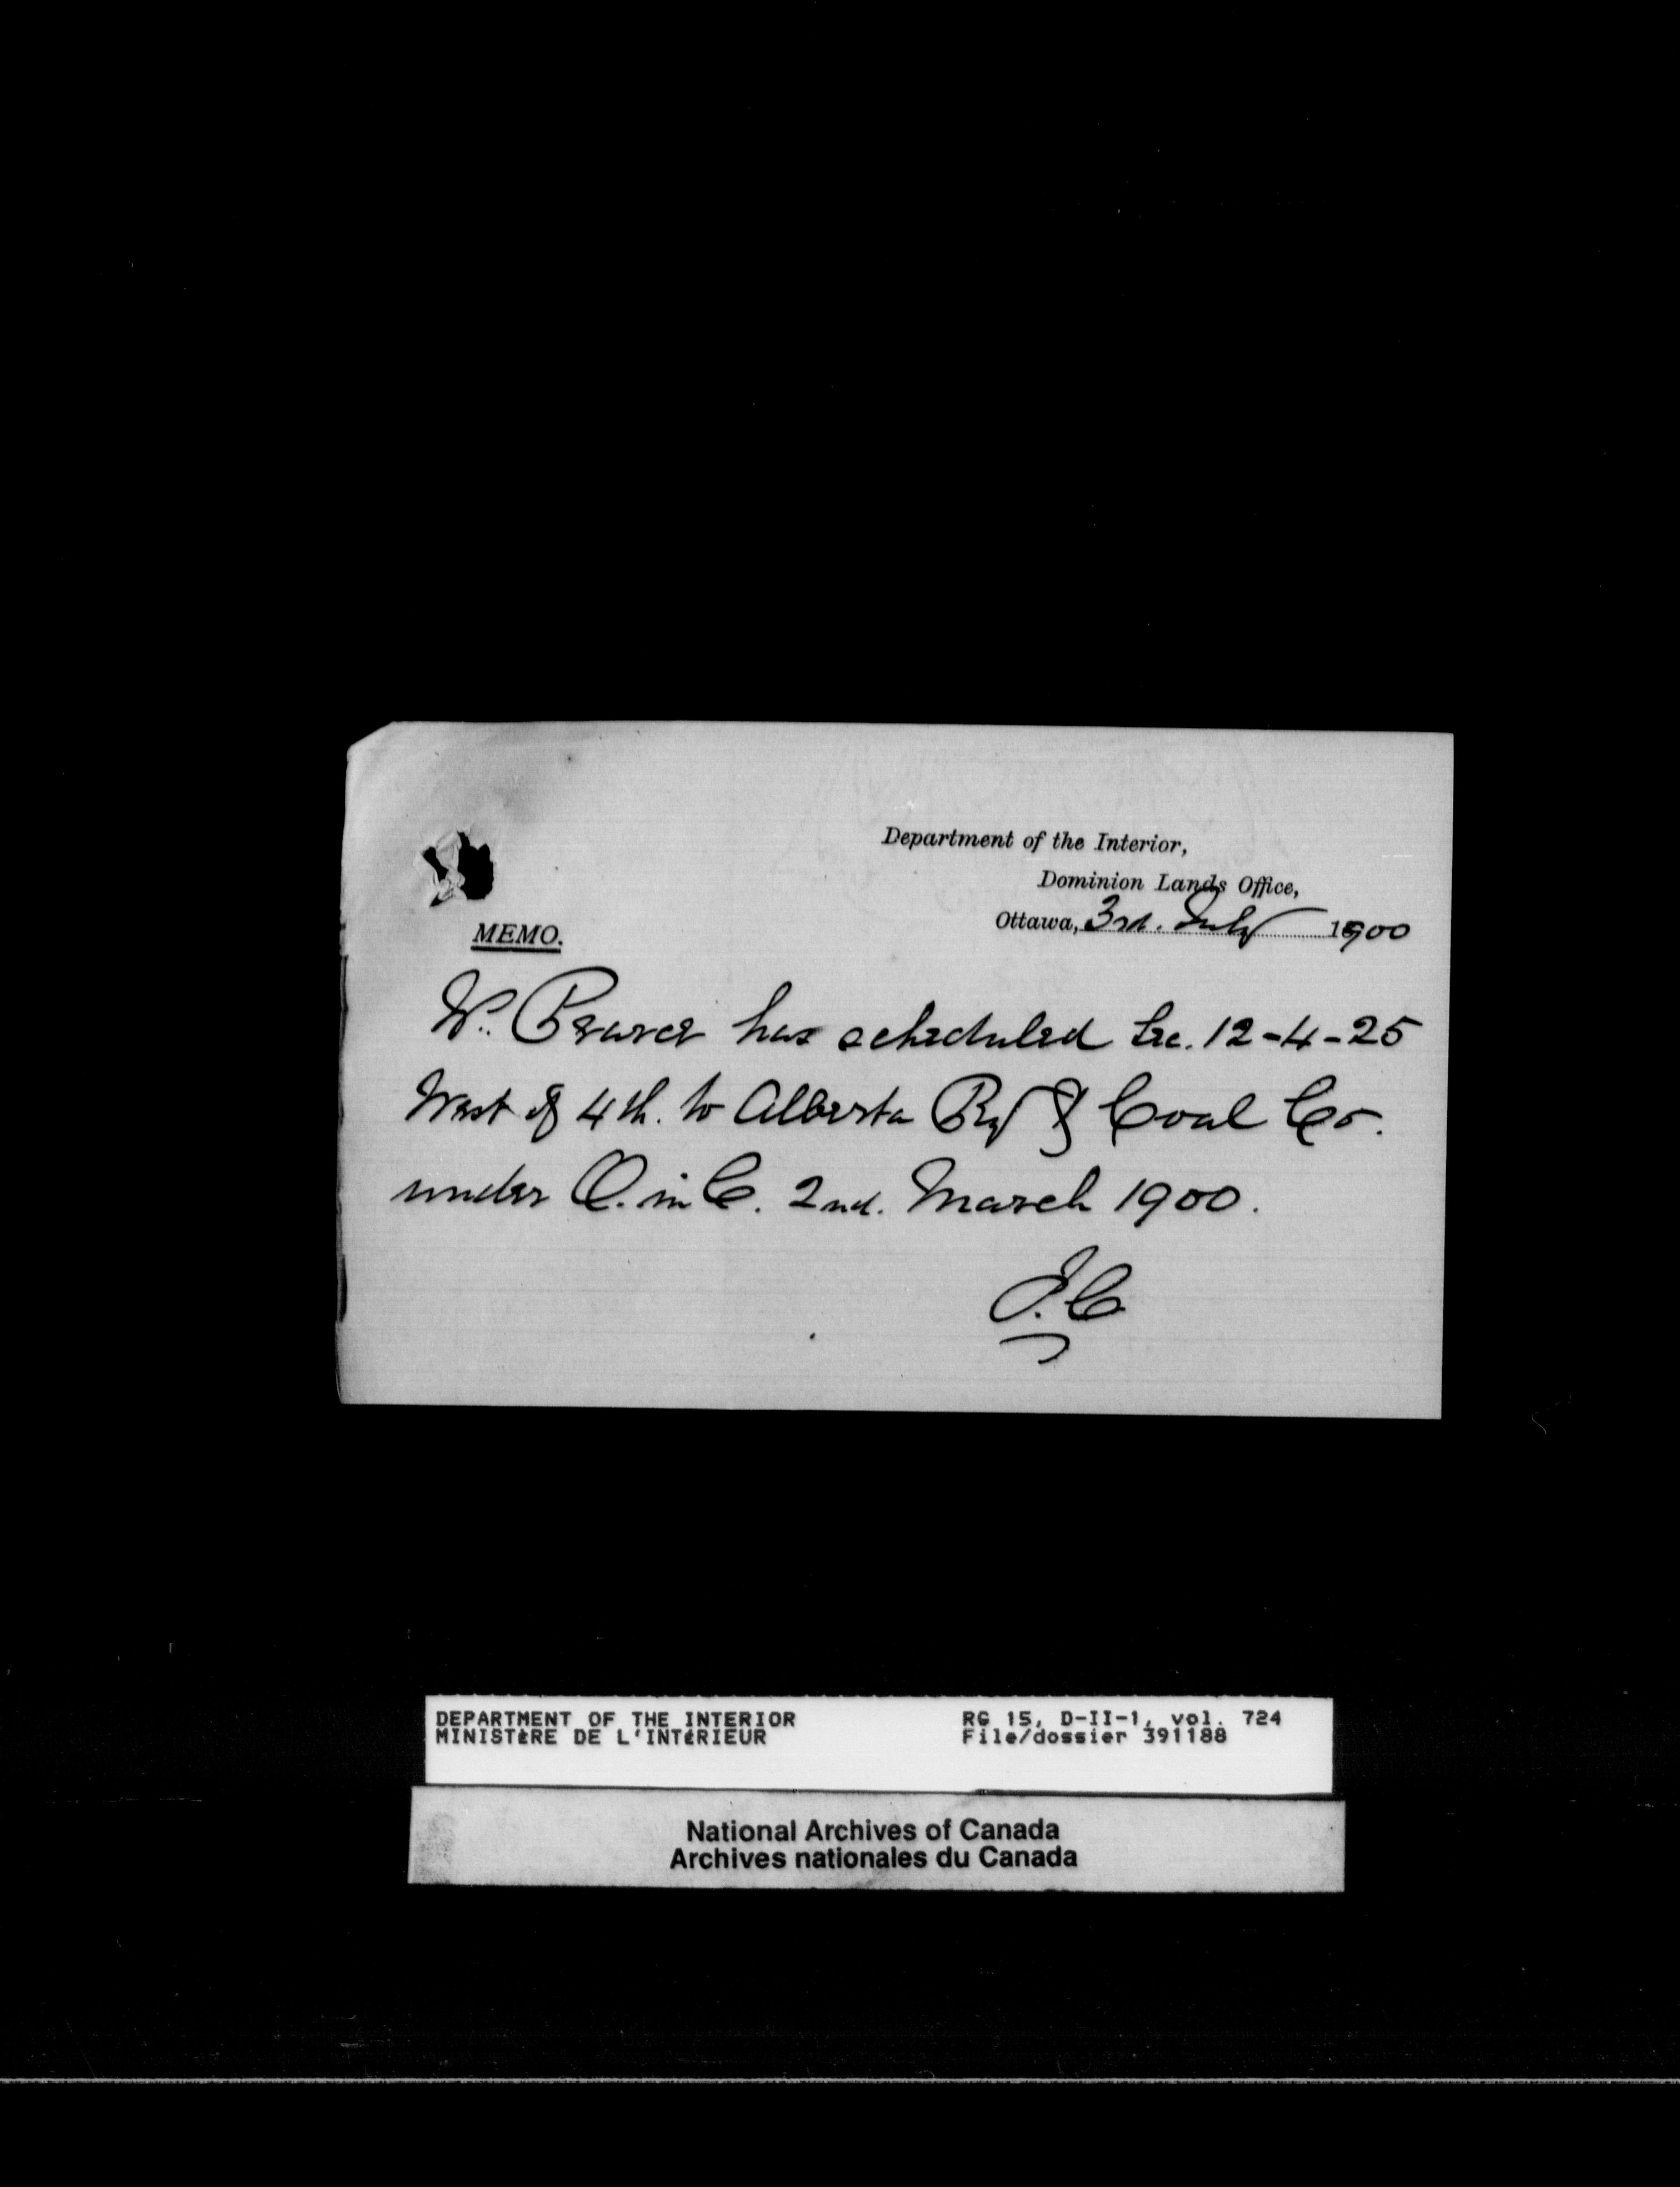 Department of the Interior,
Dominion Lands Office,
Ottawa, 3rd. July 1900
MEMO.
W. Pearce has scheduled Sec. 12-4-25
West of 4th. to Alberta Ry & Coal Co.
under O. in C. 2nd. March 1900.
J.C
DEPARTMENT OF THE INTERIOR
MINISTÈRE DE L'INTÉRIEUR
RG 15, D-II-1, vol. 724
File/dossier 391188
National Archives of Canada
Archives nationales du Canada